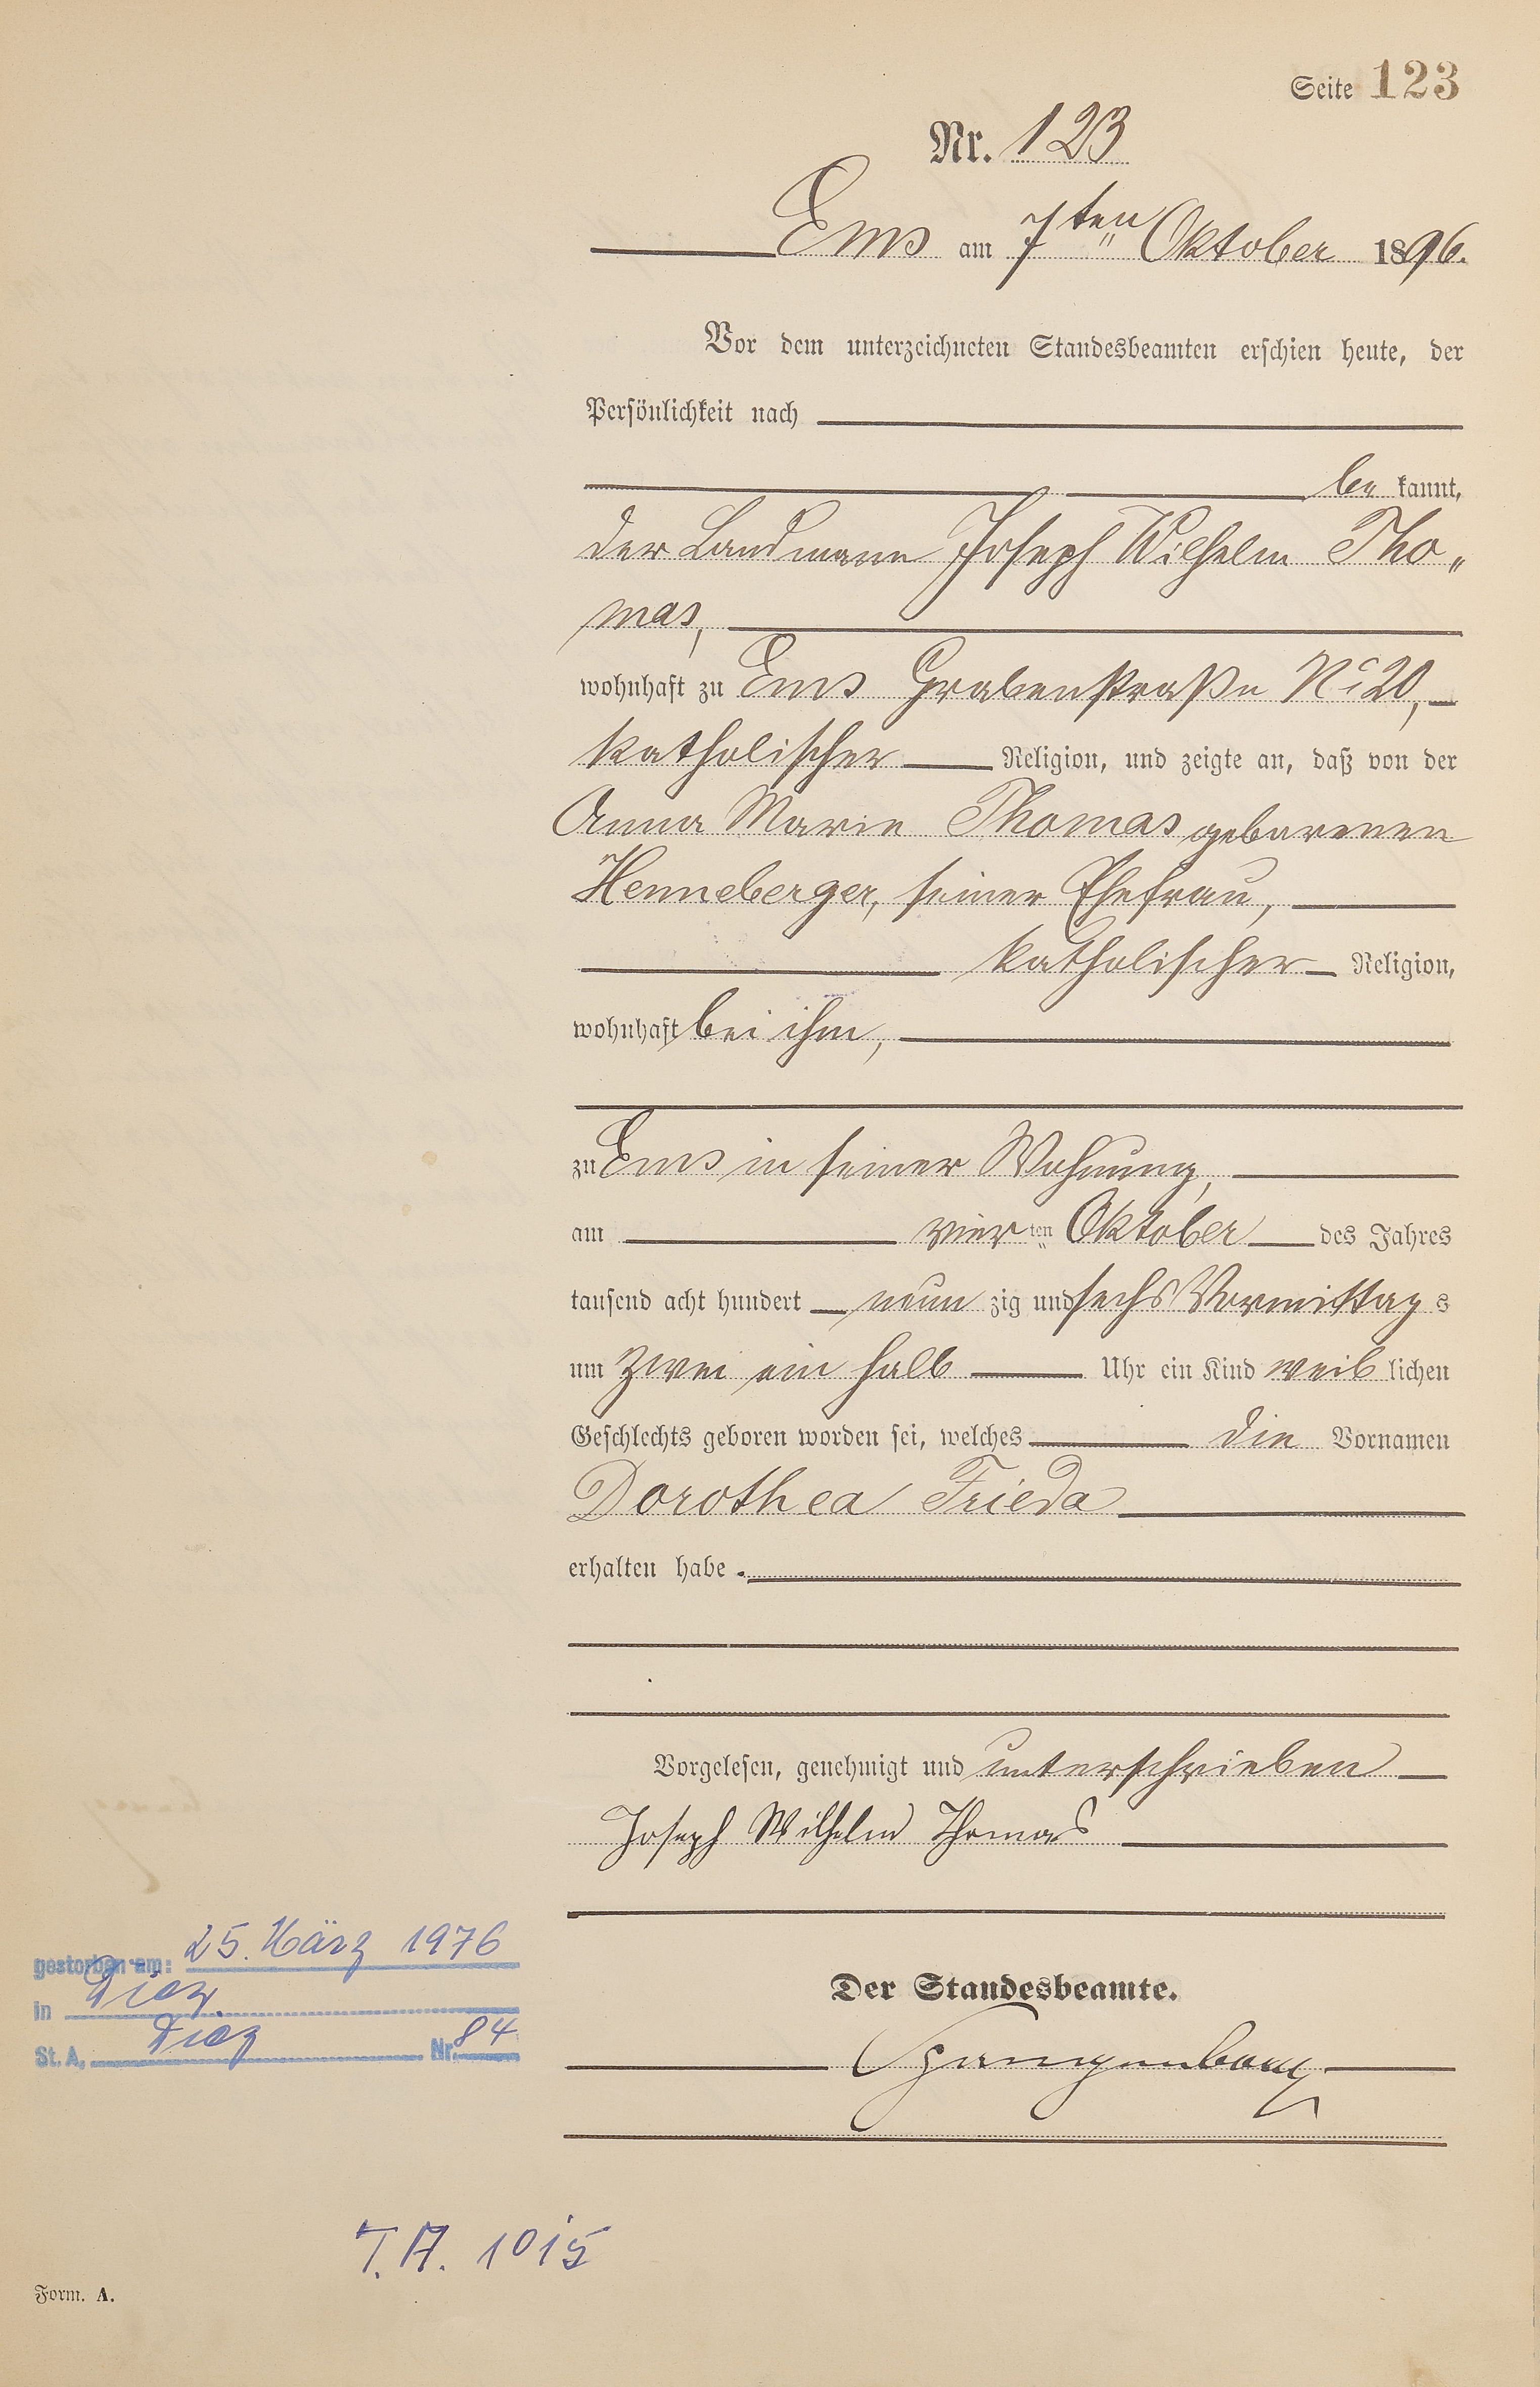 Seite 123
Nr. 123
Ems am 7ten Oktober 1896.
Vor dem unterzeichneten Standesbeamten erschien heute, der
Persönlichkeit nach
be kannt,
der Landmann Joseph Wilhelm Tho„
mas,
wohnhaft zu Ems Grabenstraße No 20,
katholischer Religion, und zeigte an, daß von der
Anna Marie Thomas geborenen
Henneberger, seiner Ehefrau,
katholischer Religion,
wohnhaft bei ihm,
zu Ems in seiner Wohnung,
am vier ten Oktober des Jahres
tausend acht hundert neun zig und sechs Vormittag s
um zwei ein halb Uhr ein Kind weib lichen
Geschlechts geboren worden sei, welches die Vornamen
Dorothea Frieda
erhalten habe.
Vorgelesen, genehmigt und unterschrieben
Joseph Wilhelm Thomas
gestorben am: 25. März 1976
in Diez.
St. A. Diez Nr. 84
Der Standesbeamte.
Spangenberg
T. A. 1015
Form. A.